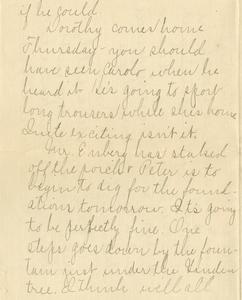 if he could
Dorothy comes home
Thursday - you should
have seen Carolo when he
heard it. is going to sport
long trousers while shes home
exciting isn't it.
Mr. Enberg has staked
off the porch & Peter is to
begin to dig for the found-
ations tomorrow. Its going
to be perfectly fine. One
steps goes down by the foun-
tain just under the linden
tree. I think we'll all